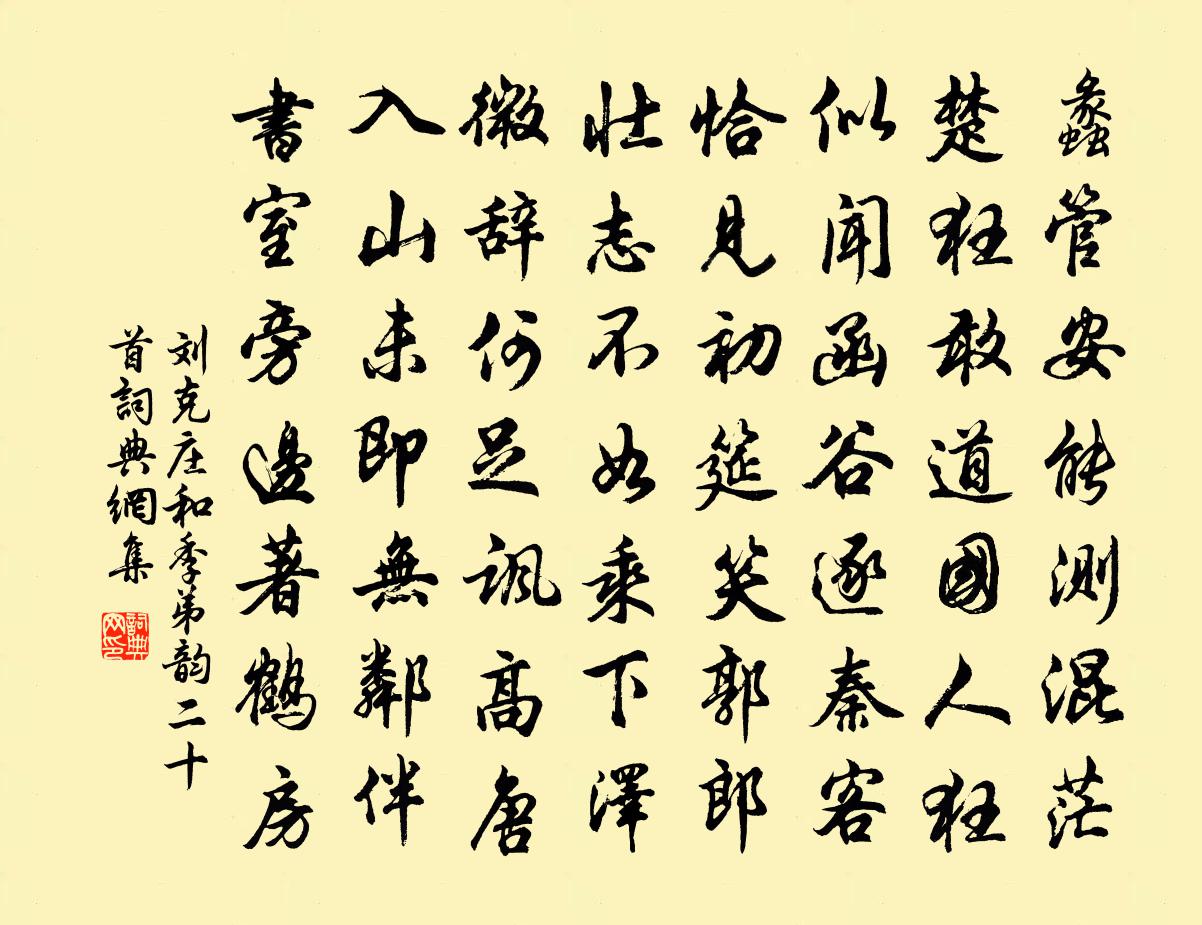 蠡管安能测混茫
楚狂敢道國人狂
似闻函谷逐秦客
恰见初筵笑郭郎
壮志不如乘下澤
微辞何足讽高唐
入山未即無鄰伴
書室旁邊著鹤房
刘克庄和季弟韵二十
首詞典網集
詞典
网印